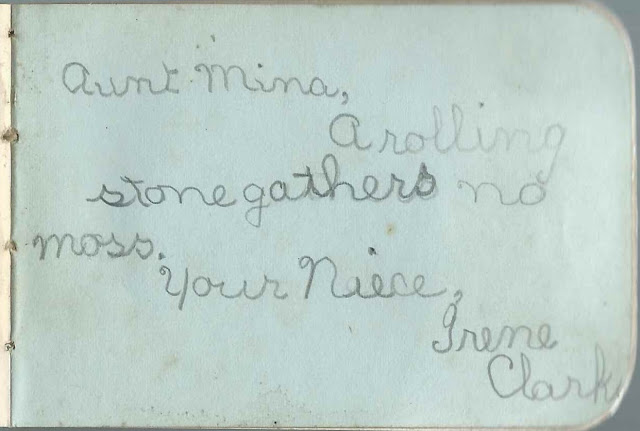 Aunt Mina,
A rolling
stone gathers no
moss.
Your Niece,
Irene
Clark